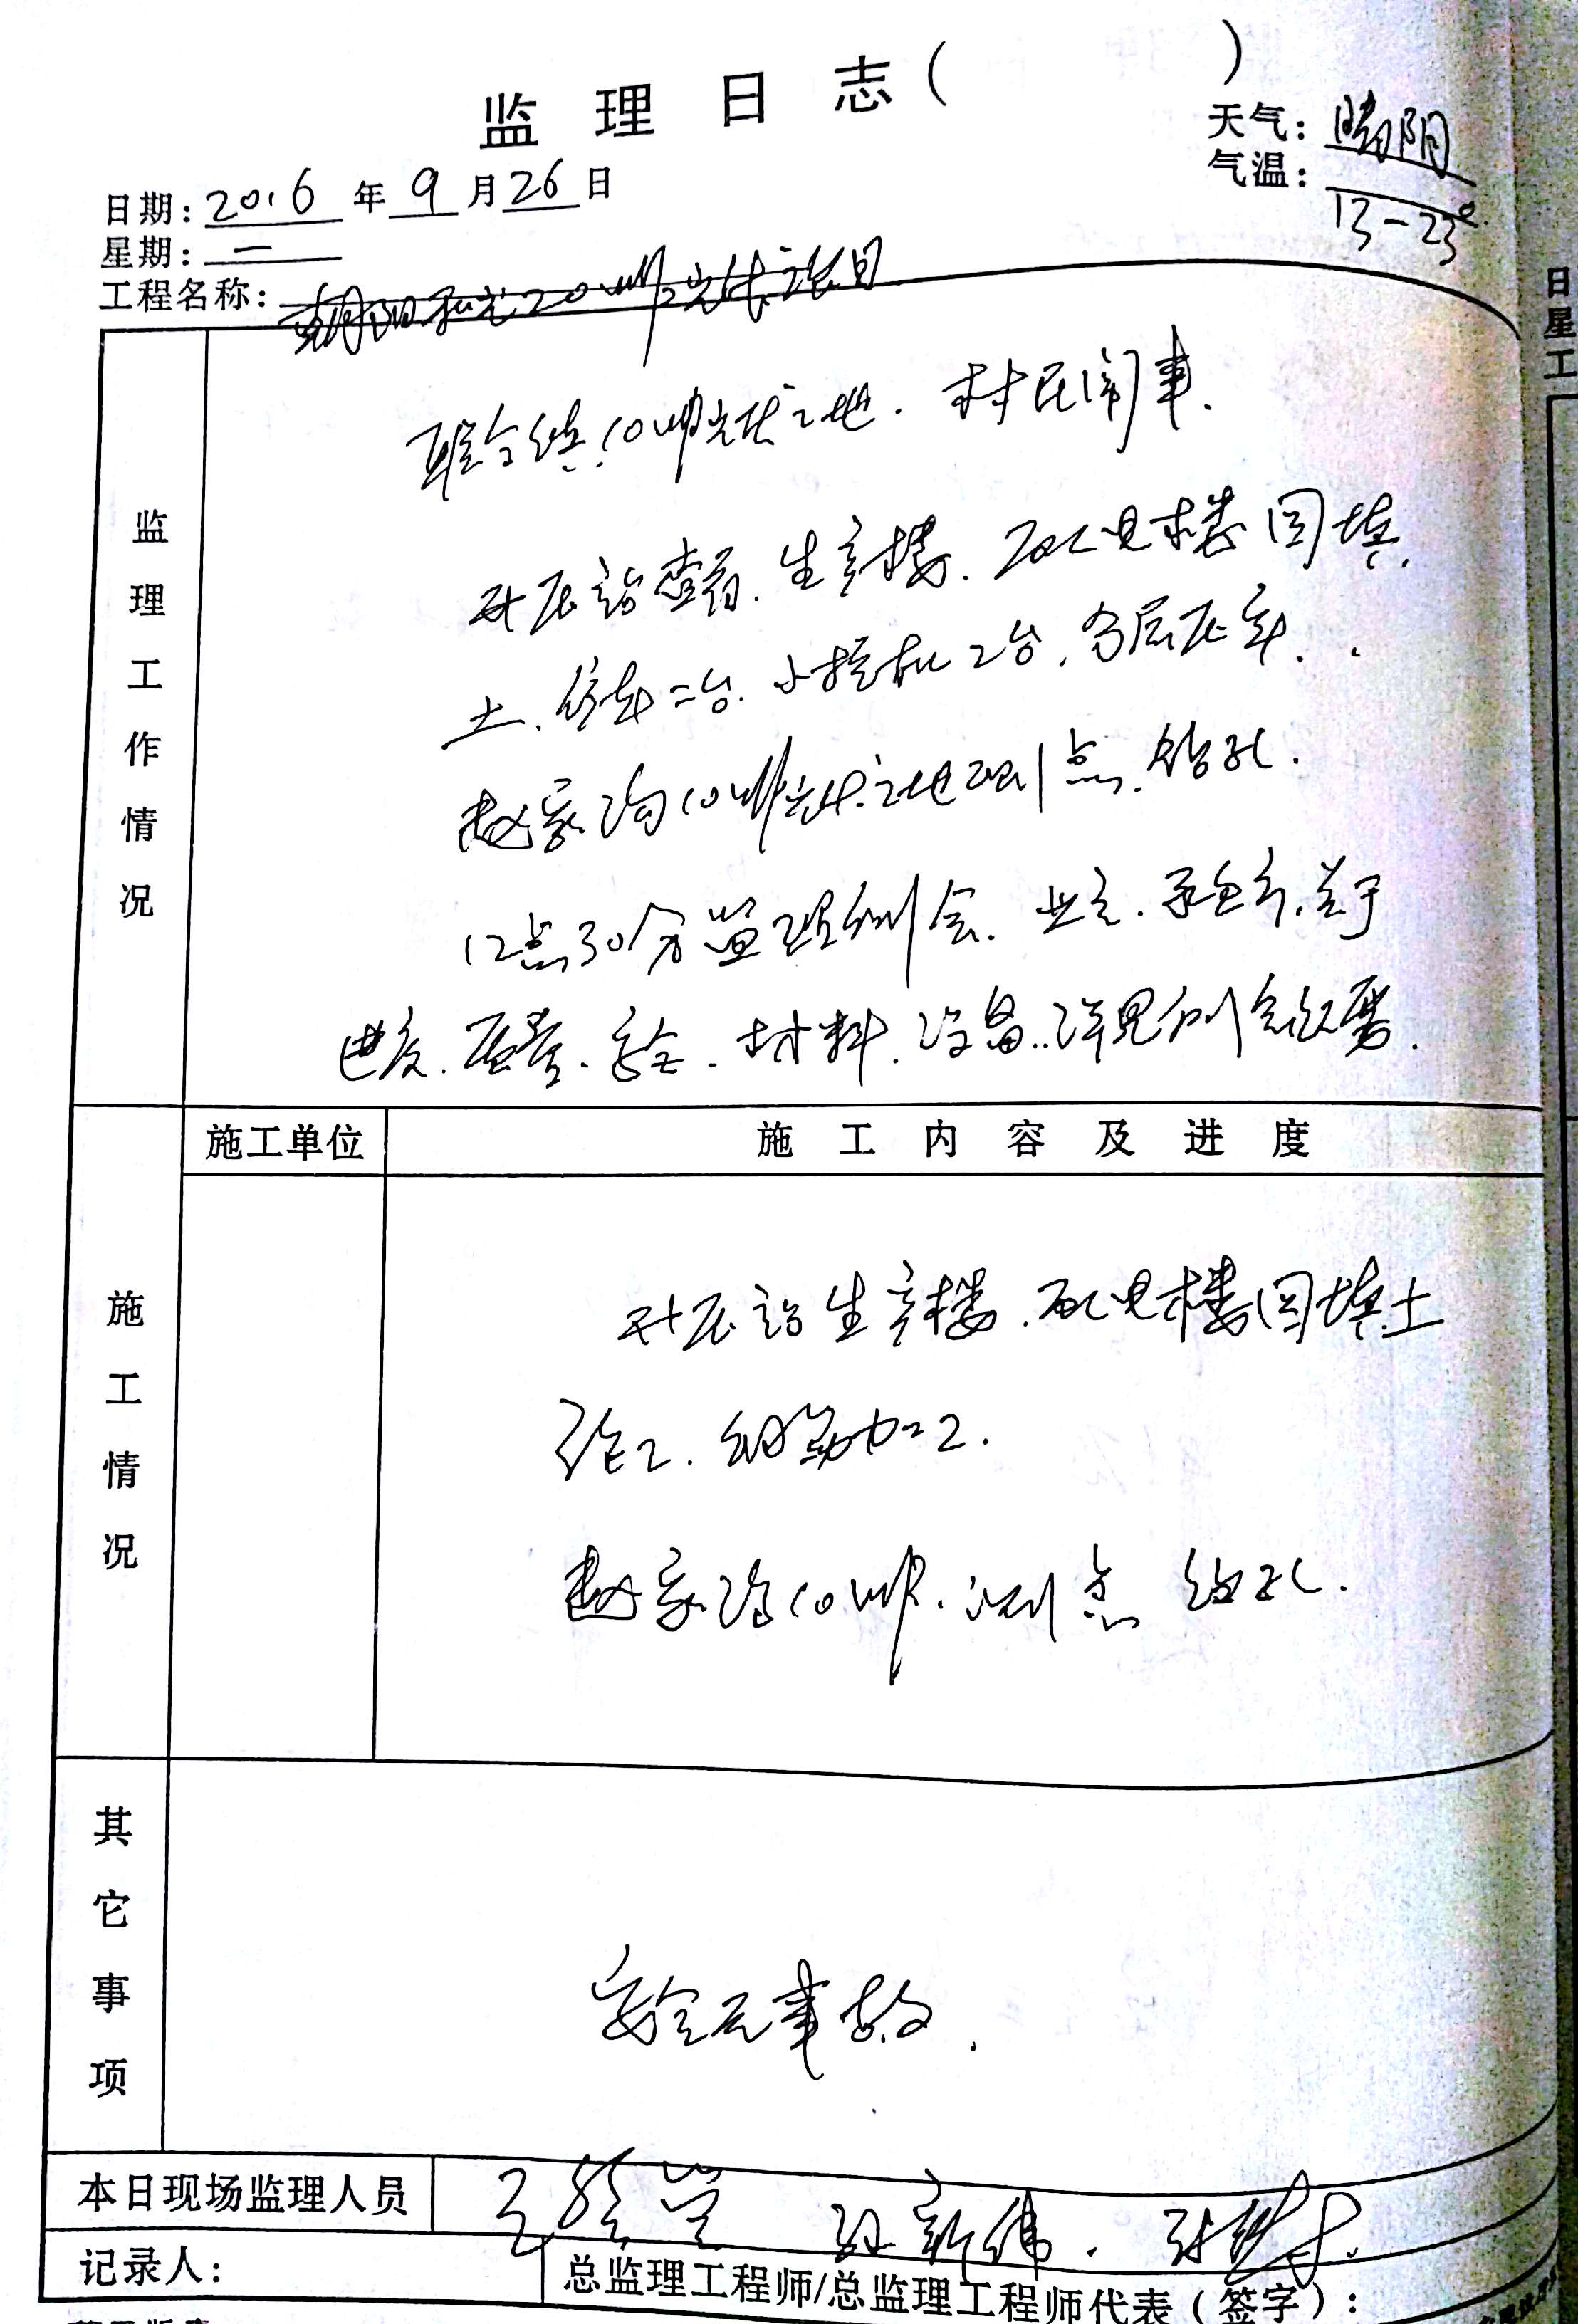 监理日志( )
天气:晴阴
气温:13-23°
日期:2016年9月26日
星期:一
工程名称:朝阳 20MWP光伏项目
联合镇10MWP光伏工地.村民闹事.
升压站查看.生产楼.配电楼回填
土. 车二台.小挖机2台.分层压实.
赵家沟10MWP光伏工地测点.钻孔.
12点30分监理例会.业主.承包方.关于
进度.质量.安全.材料.设备..详见例会纪要.
监理工作情况
施工单位
施工内容及进度
施工情况
升压站生产楼.配电楼回填土
施工.钢筋加工.
赵家沟10MWP.测点 钻孔.
其它事项
安全无事故.
本日现场监理人员
王 新伟. 张
记录人:
总监理工程师/总监理工程师代表(签字):
日
星
工